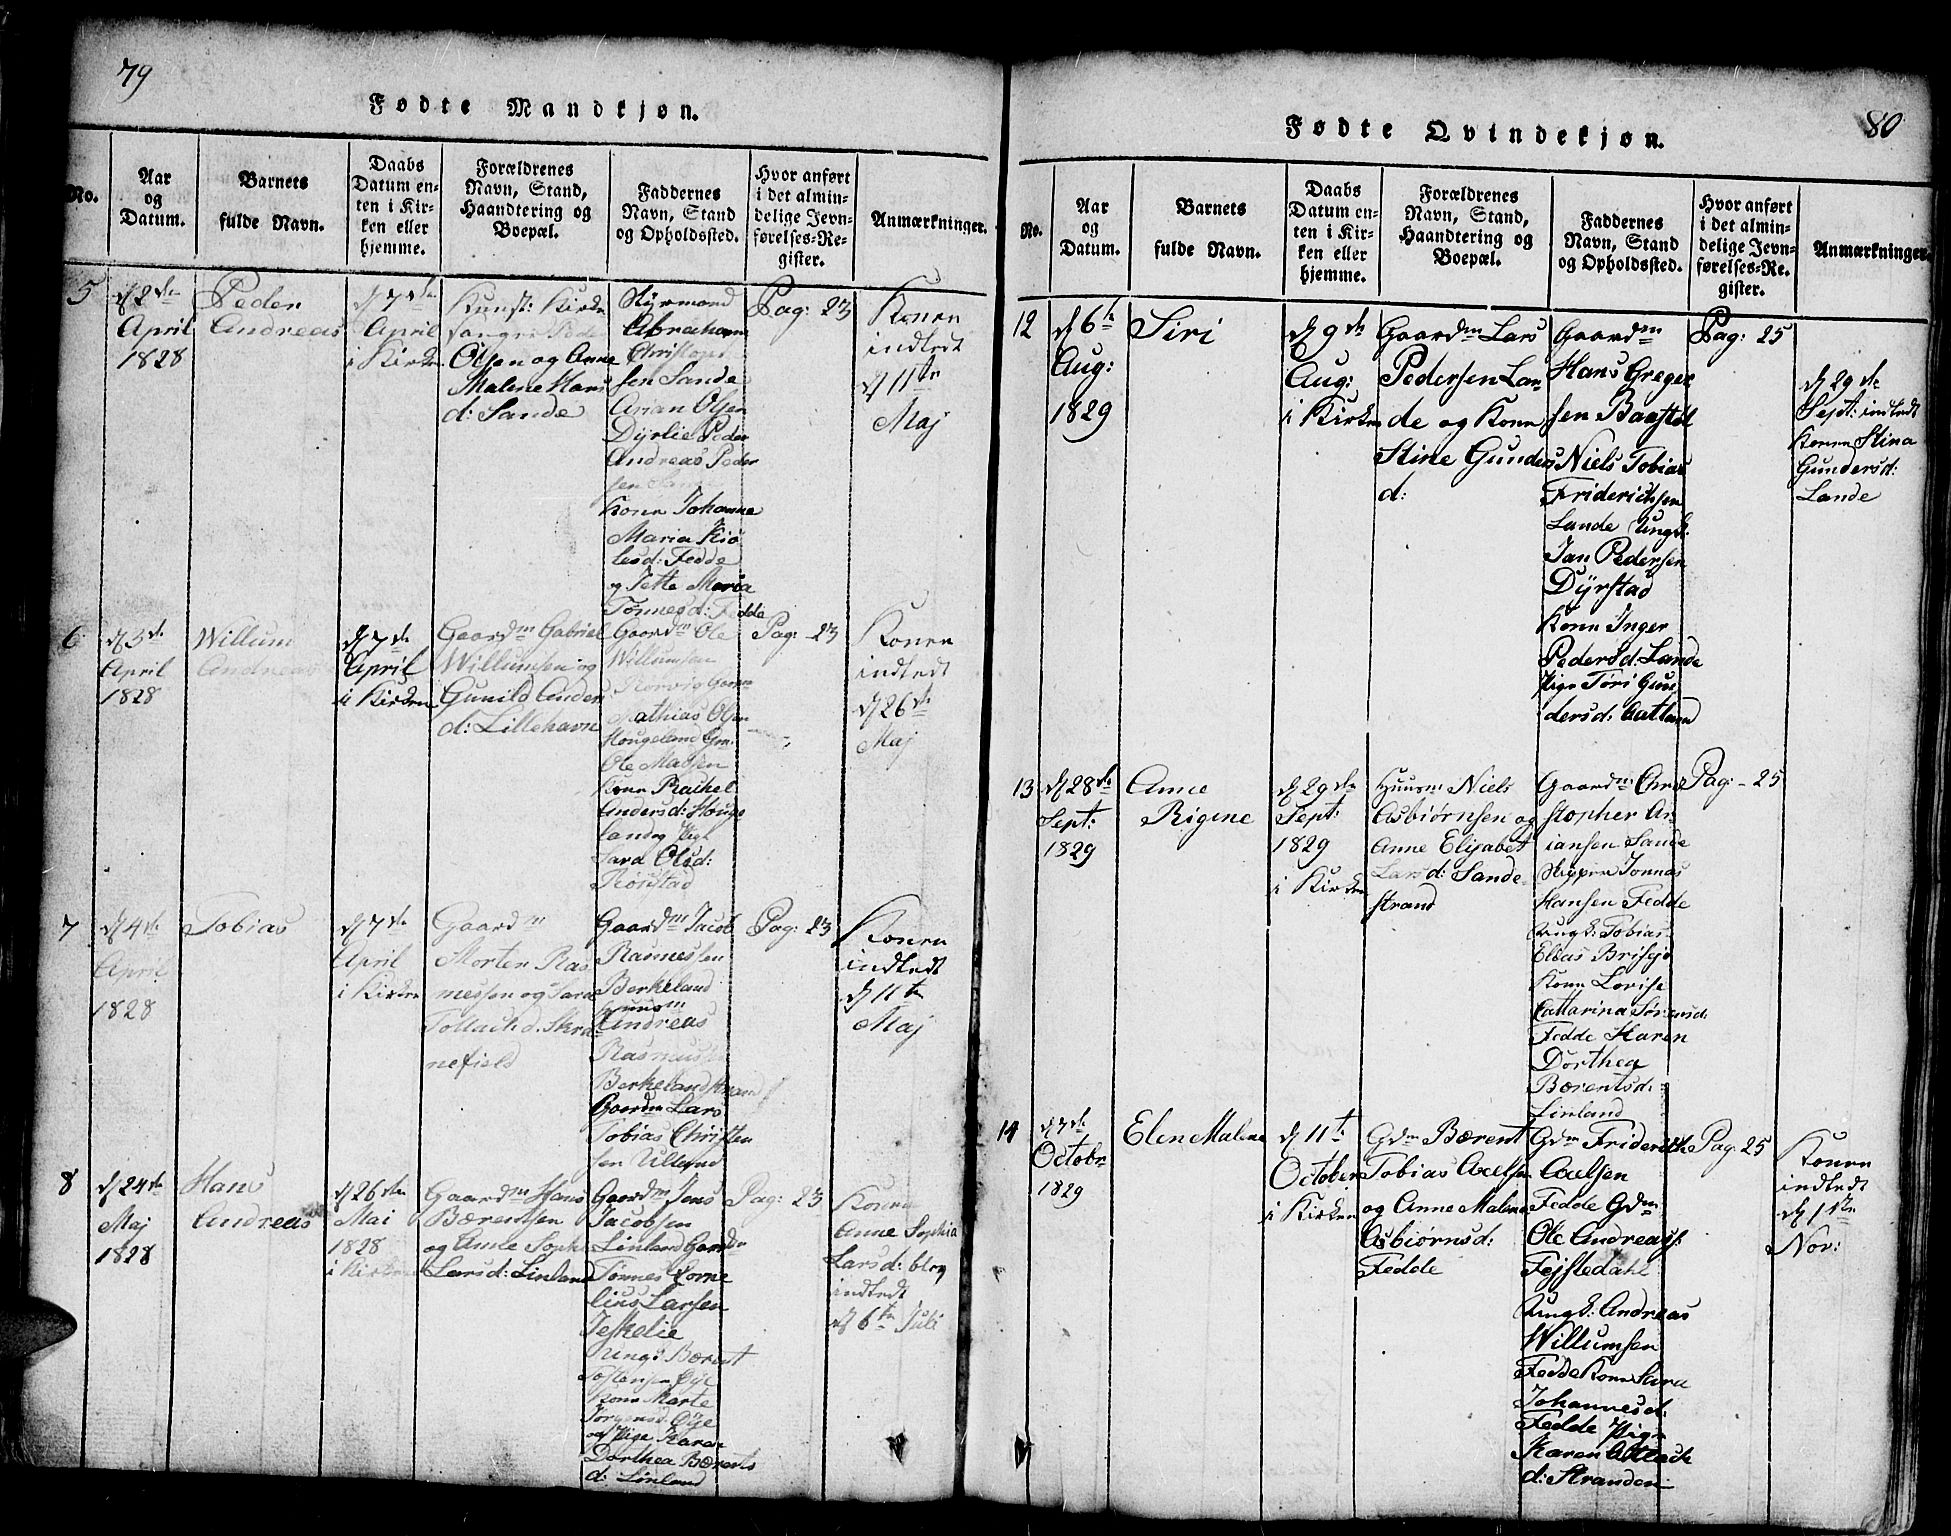 79
Fødte Mandkjøn.
No.
Aar
og
Datum.
Barnets
fulde Navn.
Daabs
Datum en-
ten i Kir-
ken eller
hjemme.
Forældrenes
Navn, Stand,
Haandtering og
Boepæl.
Faddernes
Navn, Stand
og Opholdssted.
Hvor anført
i det almin-
delige Jevn-
førelses-Re-
gister.
Anmærkninger.
5
d 2den
April
1828
Peder
Andreas
d 7de
April
i Kirken
Kunst: Kirke
sanger Peder
Olsen og Anne
Malene Hans
d: Sande
Styrmand
Abraham
Christopher
sen Sande
Arian Olsen
Dyrlie Peder
Andreas Peder
sen Sande
Konen Johanne
Maria Kiø
lesd: Fedde
og Jette Maria
Tønnesd: Fedde
Pag: 23
Konen
indledt
d 11te
Maj
6
d 3de
April
1828
Willum
Andreas
d 7de
April
i Kirken
Gaardm Gabriel
Willumsen og
Gunild Anders
d: Lillehavn
Gaardm Ole
Willumsen
Korvig Garm
Mathias Olsen
Hougeland Gm
Ole Madsen
Kone Rachel
Andersd: Houge
land og Pige
Sara Olsd:
Rørstad
Pag: 23
Konen
indledt
d 26de
Maj
7
d 4de
April
1828
Tobias
d 7de
April
i Kirken
Gaardm
Morten Ras
messen og Sara
Tollach d. Skra
nefield
Gaardm Jacob
Rasmessen
Berkeland
Huusm
Andreas
Rasmussen
Berkeland
Gaardm Lars
Tobias Christen
sen Ulland
Pag: 23
Konen
indledt
d 11te
Maj
8
d 24de
Maj
1828
Hans
Andreas
d 26de
Mai
1828
i Kirken
Gaardm Hans
Bærentsen
og Anne Sophi
Larsd: Linland
Gaardm Jens
Jacobsen
Linland Gaardm
Tønnes Corne
lius Larsen
Jeskelie
Ungk: Bærent
Tostensen Øye
Kone Marte
Jørgensd Øye
og Pige Karen
Dorthea Bærents
d: Linland
Pag: 23
Konen
Anne Sophia
Larsd: blev
indledt
d 6te Juli
80
Fødte Qvindekjøn.
No.
Aar
og
Datum.
Barnets
fulde Navn.
Daabs
Datum en-
ten i Kir-
ken eller
hjemme.
Forældrenes
Navn, Stand,
Haandtering og
Boepæl.
Faddernes
Navn, Stand
og Opholdssted.
Hvor anført
i det almin-
delige Jevn-
førelses-Re-
gister.
Anmærkninger.
12
d 6te
Aug:
1829
Siri
d 9de
Aug:
i Kirken
Gaardm Lars
Pedersen Lan
de og Kone
Stine Gunders
d:
Gaardm
Hans Greger
sen Baastøl
Niels Tobias
Friderichsen
Lande Ungk:
Jan Pedersen
Dyrstad
Kone Inger
Pedersd: Lande
Pige Tori Gun
dersd: Aatland
Pag: 25
d 29de
Sept: indledt
Konen Stina
Gundersd:
Lande
13
d 28de
Sept:
1829
Anne
Rigine
d 29de
Sept:
1829
i Kirken
Huusm Niels
Asbiørnsen og
Anne Elisabet
Larsd: Sande
strand
Gaardm Chri
stopher Ar
iansen Sande
Skipper Jonnas
Hansen Fedde
Ungk: Tobias
Elias Brisejo
Kone Lovise
Cattarina Sørensd:
Fedde Karen
Dorthea
Bærentsd:
Linland
Pag - 25
14
d 7de
Octobr
1829
Elen Malene
d 11te
October
i Kirken
Gdm Bærent
Tobias Axelsen
og Anne Malene
Asbiørnsd:
Fedde
Gdm Friderich
Axelsen
Fedde Gdm
Ole Andreas
Fejstedahl
Ungk: Andreas
Willumsen
Fedde Kone Sara
Johannesd:
Fedde Pige
Karen Attlach
d: Stranden
Pag: 25
Konen
indledt
d 1ste
Nov: